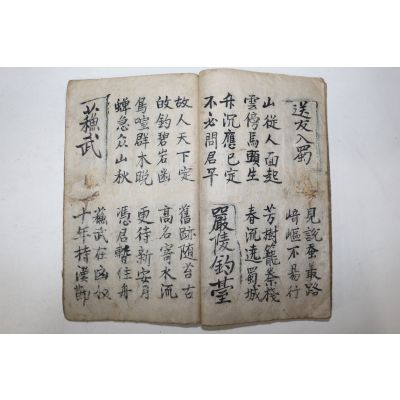 送友入蜀
見說蚕叢路
崎嶇不易行
山從人面起
雲停馬頭生
芳樹籠秦棧
春流遶蜀城
升沉應已定
不必問君平
嚴陵釣臺
故人天下定
釣碧岩幽
舊跡随苔古
高名寄水流
鳥喧群木晚
蟬急众山秋
更待新安月
憑君暫住舟
蘓武
蘓武在匈奴
十年持漢節